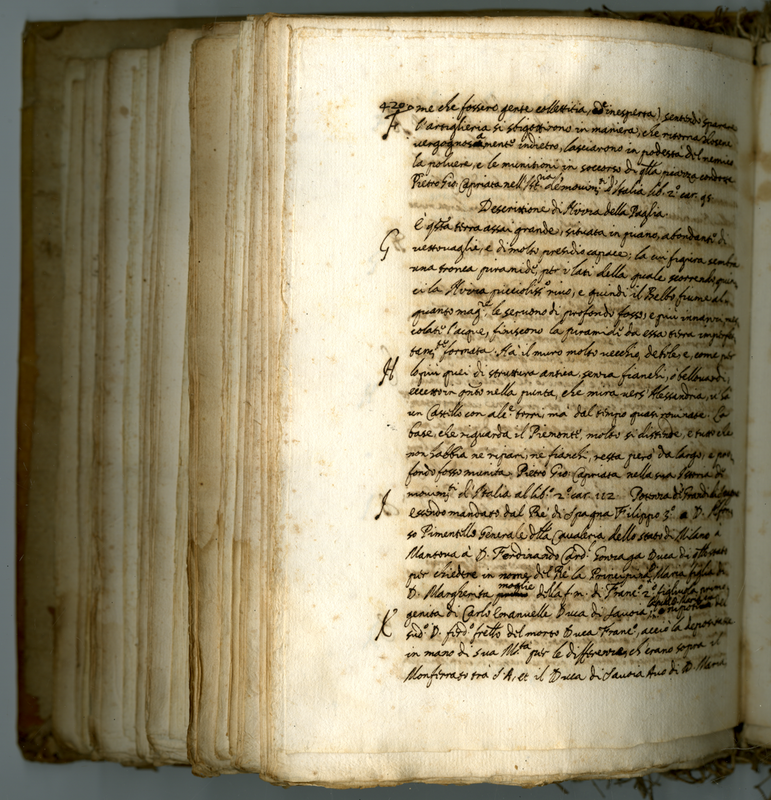 420 ome che fossero gente collettitia, ed inesperta) sentendo sparare
F l'artiglieria si sbigottirono in maniera, che ritornandosene
vergognosamente indietro, lasciarono in podestà del nemico
la polvere, e le munitioni in soccorso di qlla piazza condotte
Pietro Gio: Capriata nell'Ist.ria de' movim.ti d'Italia lib. 2.° car. 95.
Descrittione di Nizza della Paglia.
È qsta terra assai grande, situata in piano, abondante di
G vettovaglie, e di molto presidio capace; la cui figura sembra
una tronca piramide, per i lati della quale scorrendo quin
ci la Nizza picciolissº rivo, e quindi il Belbo fiume al
quanto magre, le servono di profondo fosso; e più innanzi mes
colate l'acque, finiscono la piramide da essa terra imperfe
tamte formata. Hà il muro molto vecchio, debole, e, come per
H lo più quei di struttura antica, senza fianchi, ò bellouardi,
eccetto in qnto nella punta, che mira verso Alessandria, vi hà
un Castello con alc.e torri, mà dal tempo quasi rouinate. La
base, che riguarda il Piemonte, molto si distende, e tutto che
non habbia ne ripari, ne fianchi, resta però da largo, e pro
fondo fosso munita. Pietro Gio: Capriata nella sua Istoria de'
movim.ti d'Italia al lib.° 2.° car. 112
I essendo mandato dal Rè di Spagna Filippo 3.° a D. Alfon
so Pimentello Generale della Cavaleria dello stato di Milano a
Mantova à D. Ferdinando Card. Gonzaga Duca di qllo stato
per chiedere in nome del Rè la Principina Maria figlia di
D. Margherita moglie della f. n. di Franc.° 2.° figliuola primo
genita di Carlo Emanuelle Duca di Savoia,
K sud.° D. Ferd.° frello del morto Duca Franc.°, acciò la depositasse
in mano di sua M.tà per le differenze, ch'erano sopra il
Monferrato tra S. A, et il Duca di Savoia Avo di D. Maria